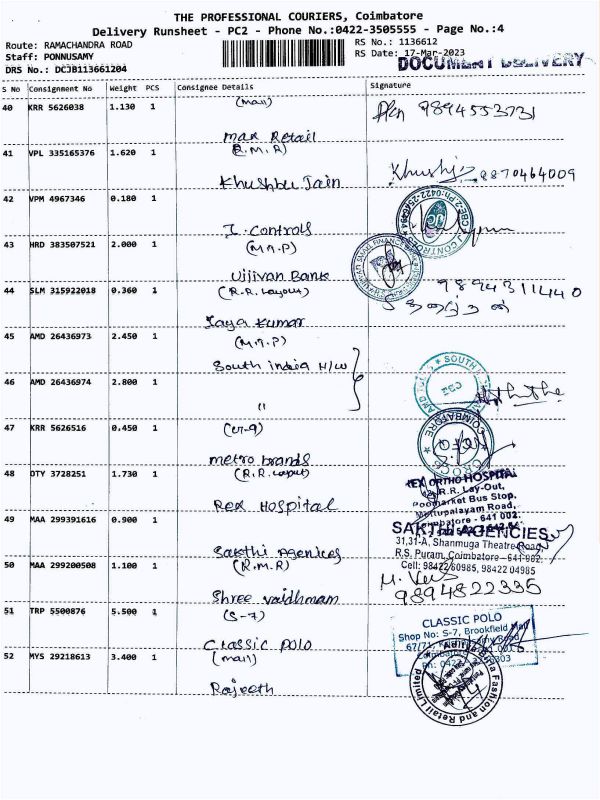 THE PROFESSIONAL COURIERS, Coimbatore
Delivery Runsheet - PC2 - Phone No.:0422-3505555 - Page No.:4
Route: RAMACHANDRA ROAD
RS No.: 1136612
Staff: PONNUSAMY
RS Date: 17-Mar-2023
DRS No.: DCJB113661204
DOCUMENT DELIVERY
S No Consignment No Weight PCS Consignee Details Signature
40 KRR 5626038 1.130 1 (mall)
9894553731
Max Retail
41 VPL 335165376 1.620 1 (R.M.R)
Khushbu Jain
8870464009
42 VPM 4967346 0.180 1
I. Controls
43 HRD 383507521 2.000 1 (M.A.P)
Ujjivan Bank
44 SLM 315922018 0.360 1 (R.R. Layout)
9894311440
Jaya Kumar
45 AMD 26436973 2.450 1 (M.A.P)
South india H/W
46 AMD 26436974 2.800 1
"
47 KRR 5626516 0.450 1
metro brands
48 OTY 3728251 1.730 1 (R.R. Layout)
REX ORTHO HOSPITAL
R.R. Lay-Out,
Poomarket Bus Stop,
Mettupalayam Road,
Coimbatore - 641 002.
Rex Hospital
49 MAA 299391616 0.900 1
SAKTHI AGENCIES
31,31-A, Shanmuga Theatre Road,
R.S. Puram, Coimbatore - 641 002.
Cell: 98422 60985, 98422 04985
Sakthi Agencies
50 MAA 299200508 1.100 1 (R.M.R)
9894822335
Shree Vaidhmam
51 TRP 5500876 5.500 1 (S-7)
CLASSIC POLO
Shop No: S-7, Brookfield Mall
Classic Polo
52 MYS 29218613 3.400 1 (mall)
Aditya Birla Fashion and Retail Limited